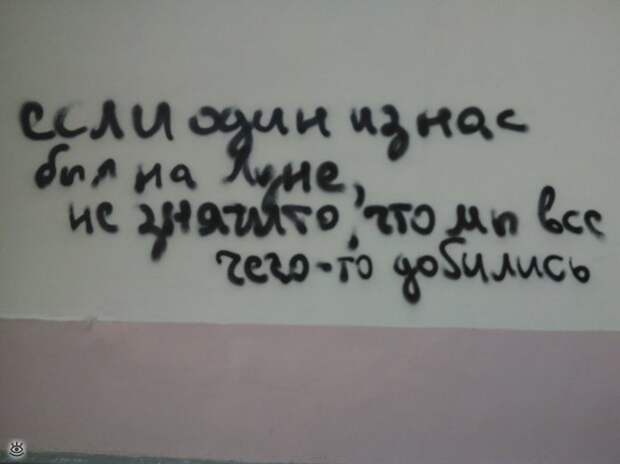 если один из нас
был на Луне,
не значит, что мы все
чего-то добились